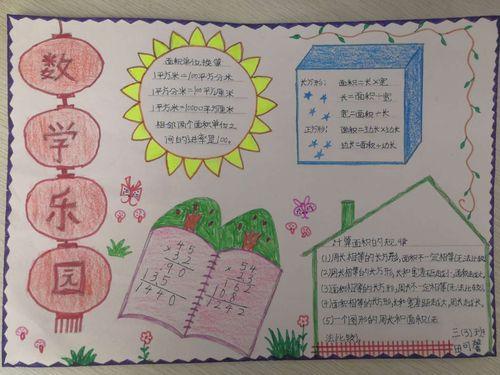 数
学
乐
园
面积单位换算
1平方米=100平方分米
1平方分米=100平方厘米
1平方米=10000平方厘米
相邻两个面积单位之
间的进率是100.
长方形: 面积=长×宽
长=面积÷宽
宽=面积÷长
正方形: 面积=边长×边长
边长=面积÷边长
45
×32
90
135
1440
54
×23
162
108
1242
计算面积的规律
(1)周长相等的长方形,面积不一定相等(无法比较)
(2)周长相等的长方形,长和宽差距越小,面积越大.
(3)面积相等的长方形,周长不一定相等(无法比较)
(4)面积相等的长方形,长和宽差距越大,周长越长.
(5)一个图形的周长和面积(无
法比较).
三(3)班